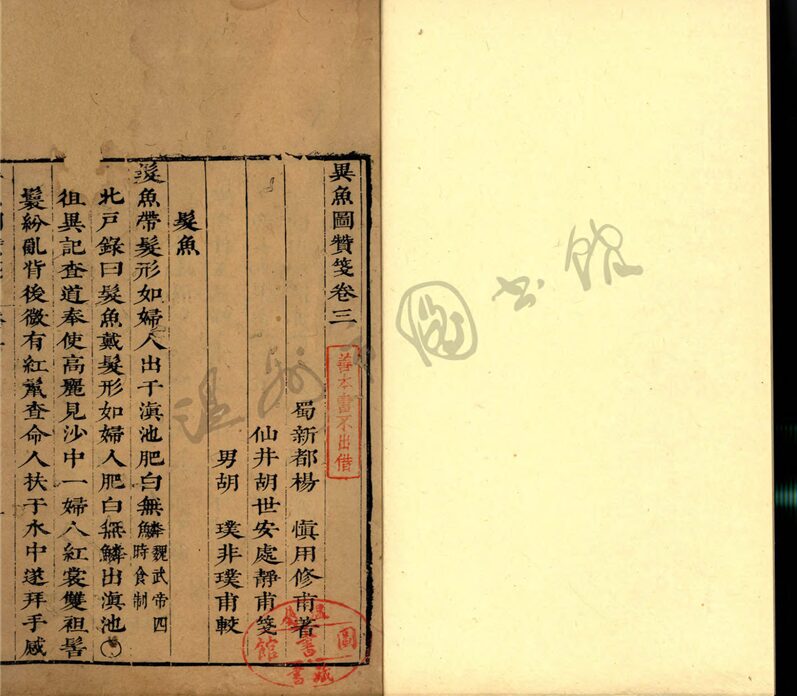 異魚圖贊箋卷三
蜀新都楊 慎用修甫著
仙井胡世安處靜甫箋
男胡 璞非璞甫較
髮魚
髮魚帶髮形如婦人出于滇池肥白無鱗 魏武帝四時食制
北戸錄曰髮魚戴髮形如婦人肥白無鱗出滇池〇
徂異記查道奉使高麗見沙中一婦人紅裳雙袒髻
鬟紛亂背後微有紅鬛查命人扶于水中遂拜手感
善本書不出借
圖書館
藏書
溫州市圖書館